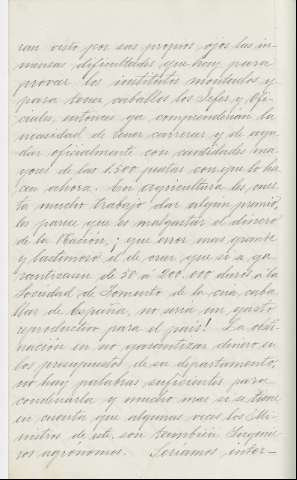 ran visto por sus propios ojos las in-
mensas dificultades que hay para
probar los institutos montados y
para tener caballos los Jefes y Ofi-
ciales, entonces ya comprenderian la
necesidad de tener carreras y de ayu-
dar oficialmente con cantidades ma-
yores de las 1500 pesetas con que lo ha-
cen ahora. En agricultura les cues-
ta mucho trabajo dar algún premio,
les parece que es malgastar el dinero
de la Nación, ¡que error mas grande
y lastimoso el de creer que si a ga-
rantizasen de 50 á 200.000 duros á la
Sociedad de Fomento de la cria caba-
llar de España, no seria un gasto
reproductivo para el pais! La obsti-
nación en no garantizar dinero en
los presupuestos de su departamento,
no hay palabras suficientes para
condenarla y mucho mas si se tiene
en cuenta que algunas veces los Mi-
nistros de este, son también Ingenie-
ros agrónomos. Seriamos inter-